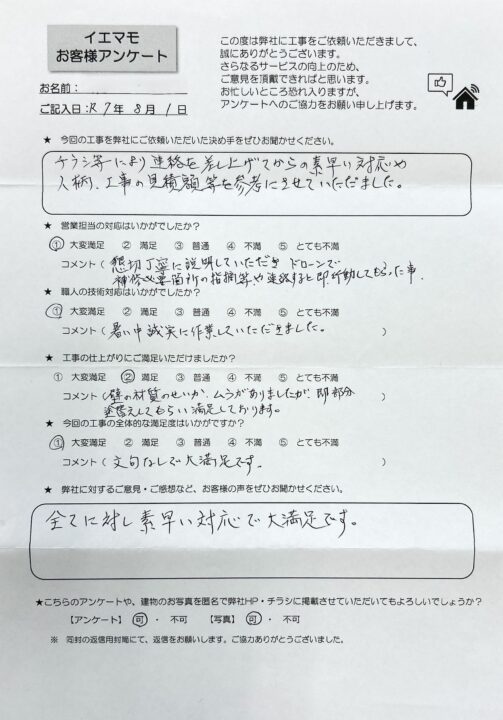 イエマモ
お客様アンケート
この度は弊社に工事をご依頼いただきまして、
誠にありがとうございます。
さらなるサービスの向上のため、
ご意見を頂戴できればと思います。
お忙しいところ恐れ入りますが、
アンケートへのご協力をお願い申し上げます。
お名前:
ご記入日:R7年8月1日
★ 今回の工事を弊社にご依頼いただいた決め手をぜひお聞かせください。
チラシ等により連絡を差し上げてからの素早い対応や
人柄、工事の見積額等を参考にさせていただました。
★ 営業担当の対応はいかがでしたか?
① 大変満足 ② 満足 ③ 普通 ④ 不満 ⑤ とても不満
コメント( 懇切丁寧に説明していただき ドローンで
補修必要箇所の指摘等や連絡すると即行動してもらった事.
★ 職人の技術対応はいかがでしたか?
① 大変満足 ② 満足 ③ 普通 ④ 不満 ⑤ とても不満
コメント( 暑い中誠実に作業していただきました。 )
★ 工事の仕上がりにご満足いただけましたか?
① 大変満足 ② 満足 ③ 普通 ④ 不満 ⑤ とても不満
コメント( 壁の材質のせいか、ムラがありましたが、即部分
塗替えしてもらい満足しております。 )
★ 今回の工事の全体的な満足度はいかがですか?
① 大変満足 ② 満足 ③ 普通 ④ 不満 ⑤ とても不満
コメント( 文句なしで大満足です。 )
★ 弊社に対するご意見・ご感想など、お客様の声をぜひお聞かせください。
全てに対し素早い対応で大満足です。
★こちらのアンケートや、建物のお写真を匿名で弊社HP・チラシに掲載させていただいてもよろしいでしょうか?
【アンケート】 可 ・ 不可 【写真】 可 ・ 不可
※ 同封の返信用封筒にて、返信をお願いします。ご協力ありがとうございました。